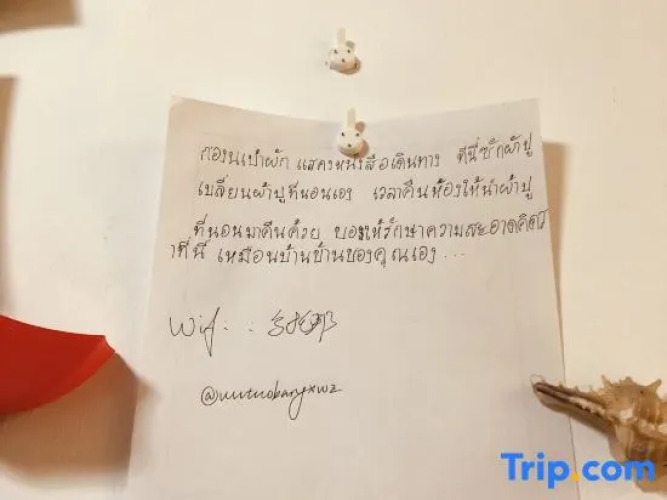 แสดงหนังสือเดินทาง ที่นี่ซักผ้าปู
เปลี่ยนผ้าปูที่นอนเอง เวลาคืนห้องให้นำผ้าปู
ที่นอนมาคืนด้วย ขอให้รักษาความสะอาดคิดว
่าที่นี่ เหมือนบ้านบ้านของคุณเอง ...
Wifi :
Trip.com